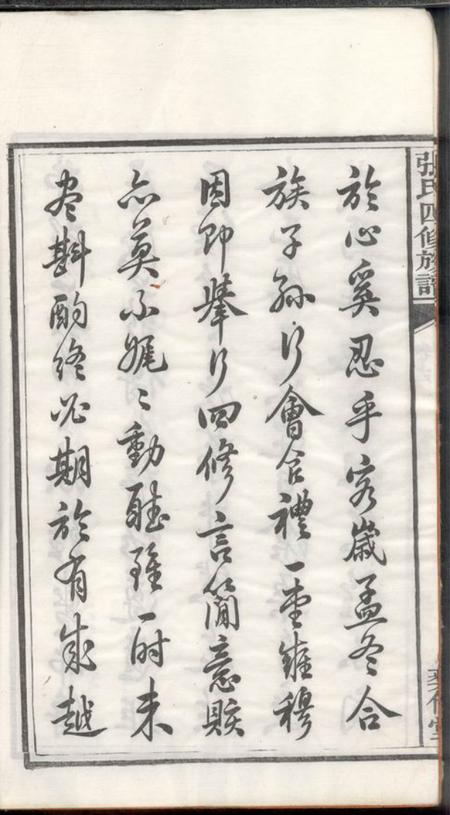 張氏四修族譜
於心奚忍乎客歲孟冬合
族子孫行會合禮一堂雍穆
因即舉行四修言簡意賅
亦莫不娓〻動聽雖一時未
盡斟酌終必期於有成越